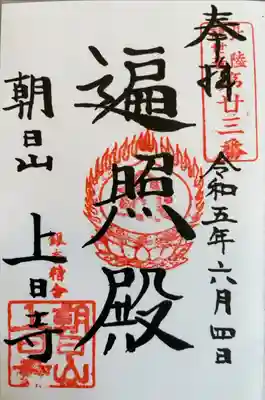 奉拝
廿三番
令和五年六月四日
遍照殿
朝日山
上日寺
朝日山